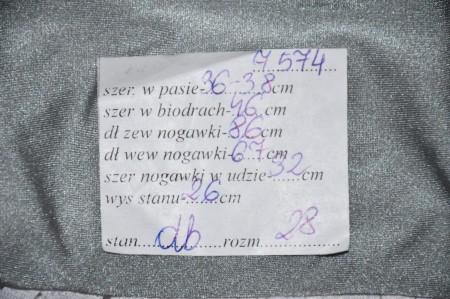 7574
szer. w pasie-36-38cm
szer w biodrach-46 cm
dł zew nogawki-86cm
dł wew nogawki-67cm
szer nogawki w udzie-32cm
wys stanu-26cm
stan......db......rozm...28...